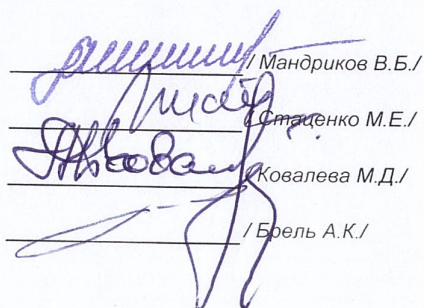 / Мандриков В.Б./
/ Стаценко М.Е./
/ Ковалева М.Д./
/ Брель А.К./